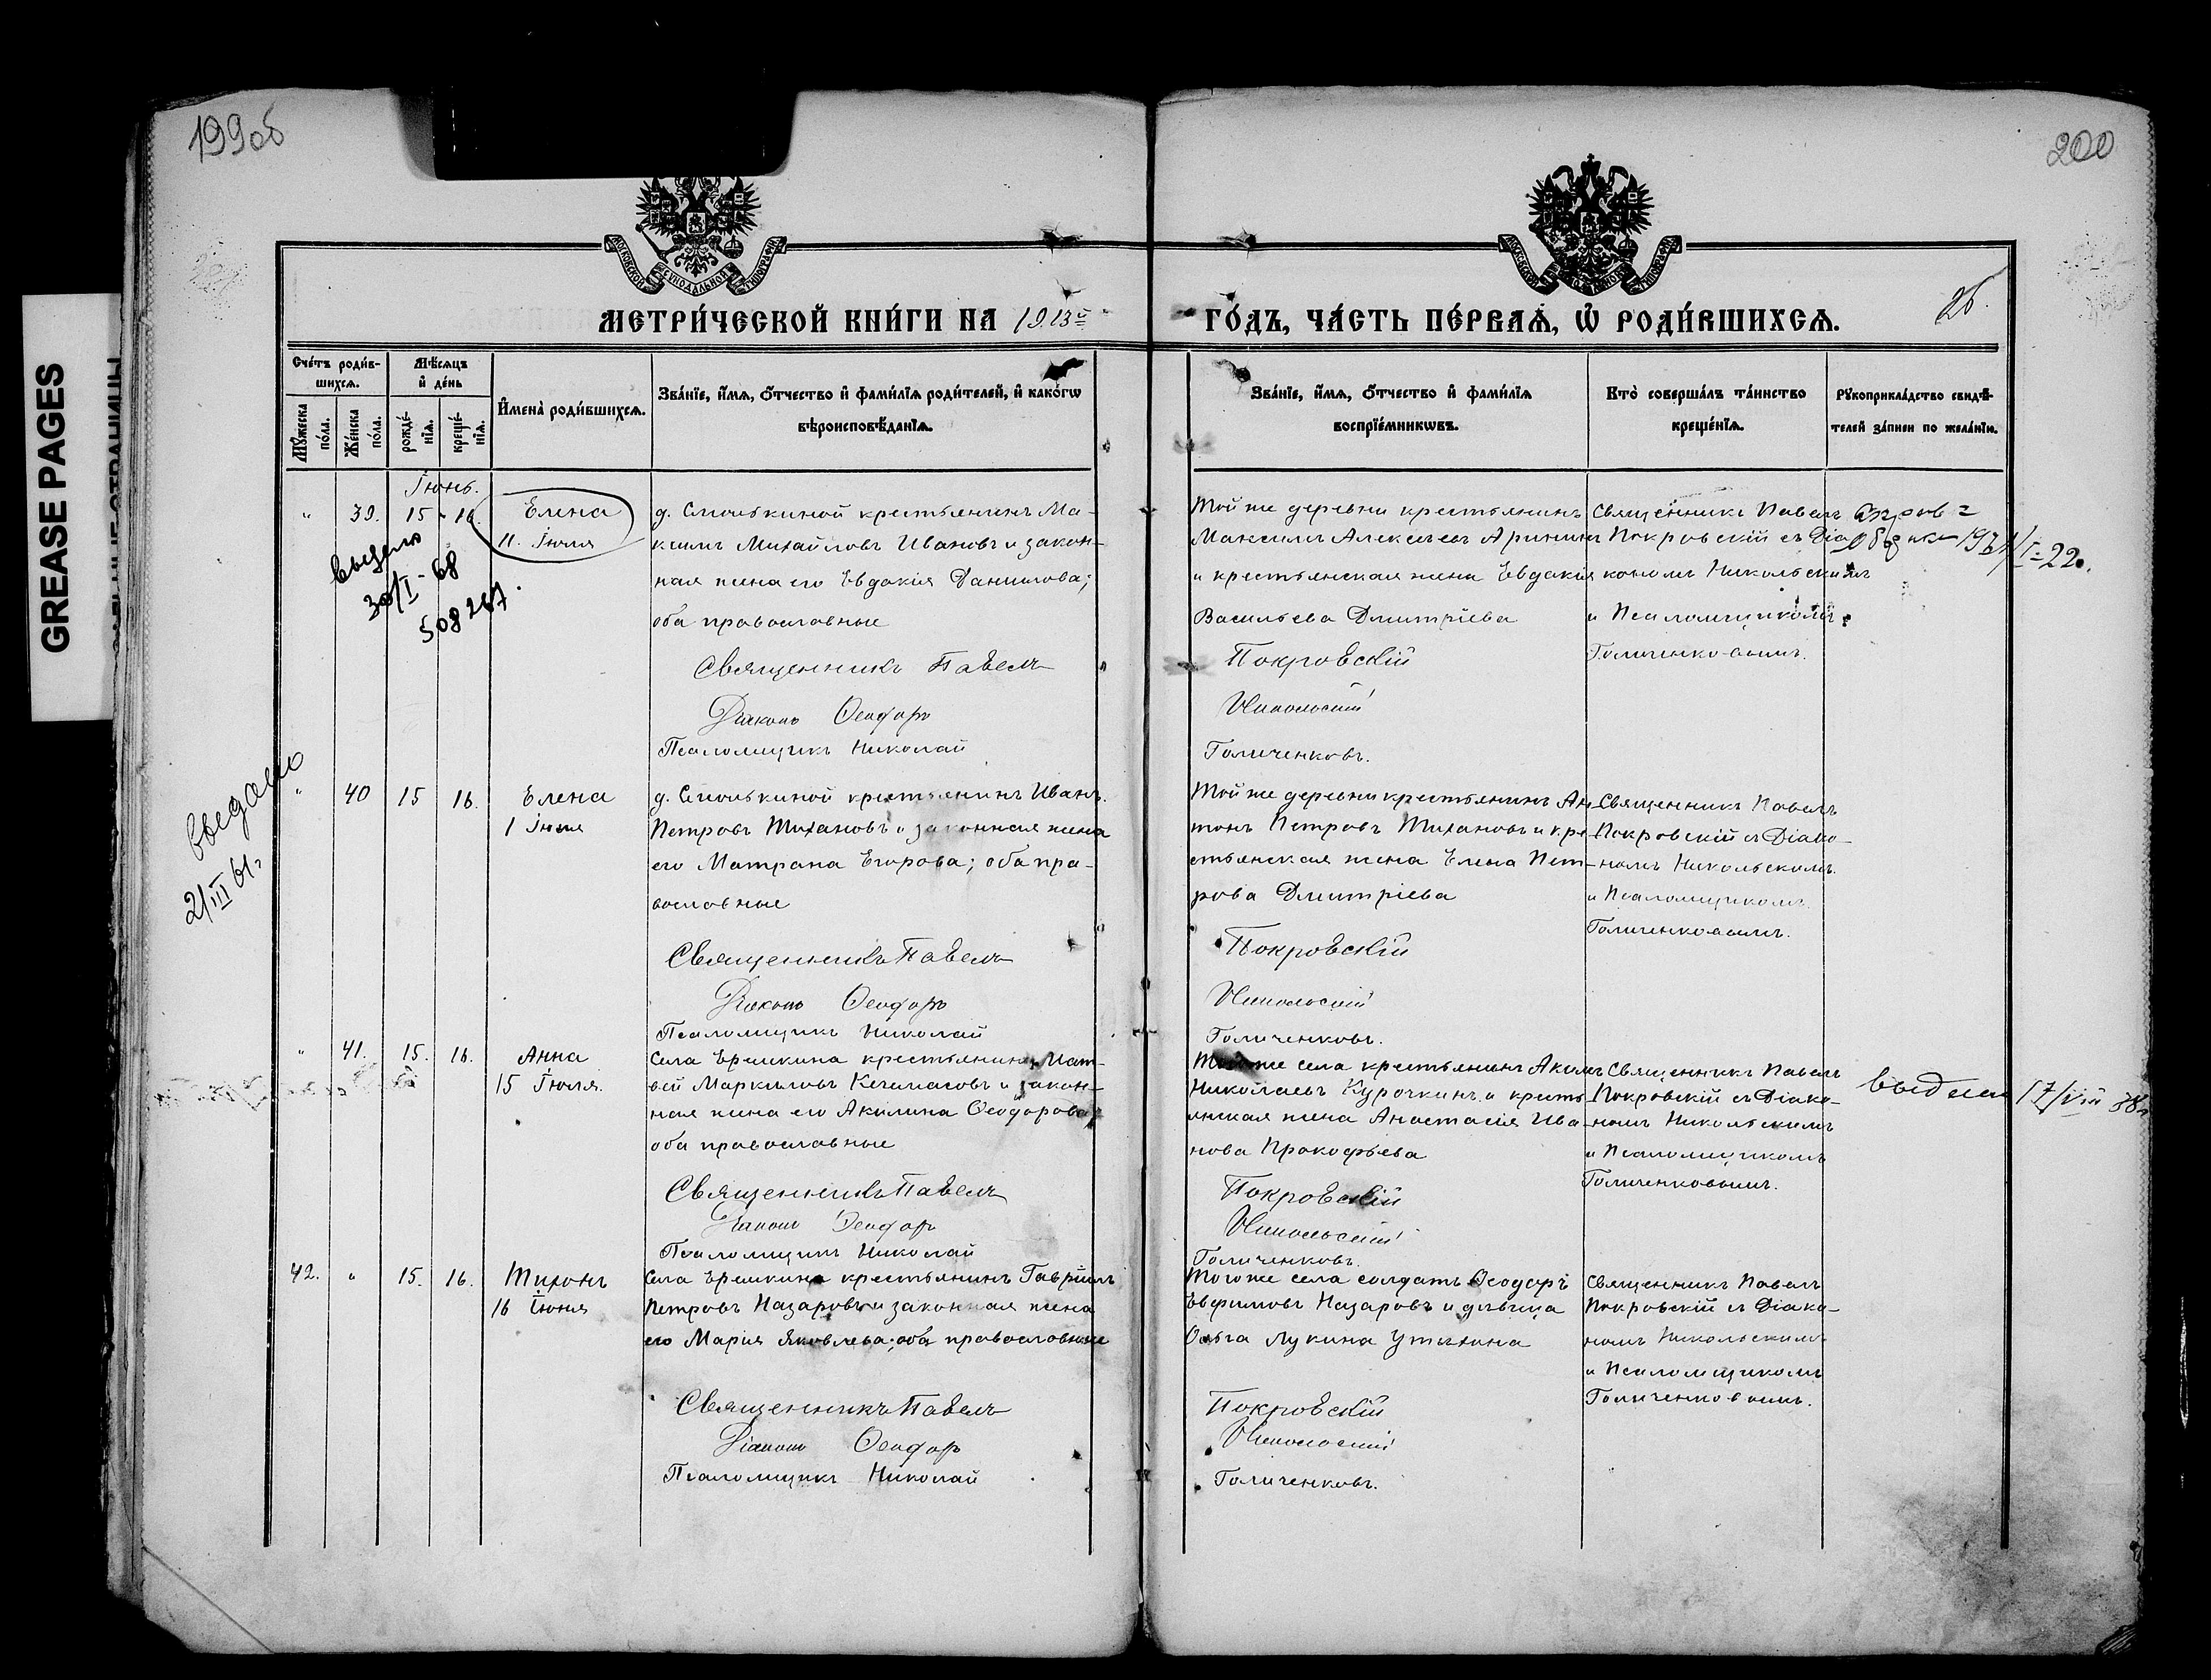 199об
200
GREASE PAGES
МОСКОВСКОЙ СѴНОДАЛЬНОЙ ТИПОГРАФІИ
МЕТРИ́ЧЕСКОЙ КНИ́ГИ НА 1913й
ГО́ДЪ, ЧА́СТЬ ПЕ́РВАѦ, Ѡ҆ РОДИ́ВШИХСѦ.
26.
Сче́тъ роди́в-
шихсѧ.
Мѣ́сѧцъ
и҆ де́нь
Мꙋ́жеска
по́ла.
Же́нска
по́ла.
рожде́-
нїѧ.
креще́-
нїѧ.
И҆мена̀ роди́вшихсѧ.
Зва́нїе, и҆́мѧ, ѻ҆́тчество и҆ фами́лїѧ роди́телей, и҆ како́гѡ
вѣроисповѣ́данїѧ.
Зва́нїе, и҆́мѧ, ѻ҆́тчество и҆ фами́лїѧ
воспрїе́мникѡвъ.
Кто̀ соверша́лъ та́инство
креще́нїѧ.
Рꙋкоприкла́дство свидѣ́-
телей за́писи по жела́нїю.
Іюнь.
" 39. 15 - 16. Елена
11. Іюля
д. Смолькиной крестьянинъ Ма-
ксимъ Михайловъ Ивановъ и закон-
ная жена его Евдокія Данилова;
оба православные
Священникъ Павелъ
Діаконъ Ѳеодоръ
Псаломщикъ Николай
Той же деревни крестьянинъ
Максимъ Алексѣевъ Арининъ
и крестьянская жена Евдокія
Васильева Дмитріева
Покровскій
Никольскій
Голиченковъ.
Священникъ Павелъ
Покровскій съ Діа-
кономъ Никольскимъ
и Псаломщикомъ
Голиченковымъ.
I-22.
выдано
30/I-68
508267.
" 40 15 16. Елена
1 Іюля
д. Смолькиной крестьянинъ Иванъ
Петровъ Тихановъ и законная жена
его Матрона Егорова; оба пра-
вославные
Священникъ Павелъ
Діаконъ Ѳеодоръ
Псаломщикъ Николай
Той же деревни крестьянинъ Ан-
тонъ Петровъ Тихановъ и кре-
стьянская жена Елена Пет-
рова Дмитріева
Покровскій
Никольскій
Голиченковъ.
Священникъ Павелъ
Покровскій съ Діако-
номъ Никольскимъ
и Псаломщикомъ
Голиченковымъ.
выдано
21/III 61г
" 41. 15. 16. Анна
15 Іюля.
Села Еремкина крестьянинъ Мат-
вѣй Маркеловъ Кечемасовъ и закон-
ная жена его Акилина Ѳеодорова;
оба православные
Священникъ Павелъ
Діаконъ Ѳеодоръ
Псаломщикъ Николай
Того же села крестьянинъ Акимъ
Николаевъ Курочкинъ и кресть-
янская жена Анастасія Ива-
нова Прокофьева
Покровскій
Никольскій
Голиченковъ.
Священникъ Павелъ
Покровскій съ Діако-
номъ Никольскимъ
и Псаломщикомъ
Голиченковымъ.
17/VIII 38г
42. " 15. 16. Тихонъ
16 Іюня
Села Еремкина крестьянинъ Гавріилъ
Петровъ Назаровъ и законная жена
его Марія Яковлева; оба православные
Священникъ Павелъ
Діаконъ Ѳеодоръ
Псаломщикъ Николай
Того же села солдатъ Ѳеодоръ
Евфимовъ Назаровъ и дѣвица
Ольга Лукина Утѣхина
Покровскій
Никольскій
Голиченковъ.
Священникъ Павелъ
Покровскій съ Діако-
номъ Никольскимъ
и Псаломщикомъ
Голиченковымъ.